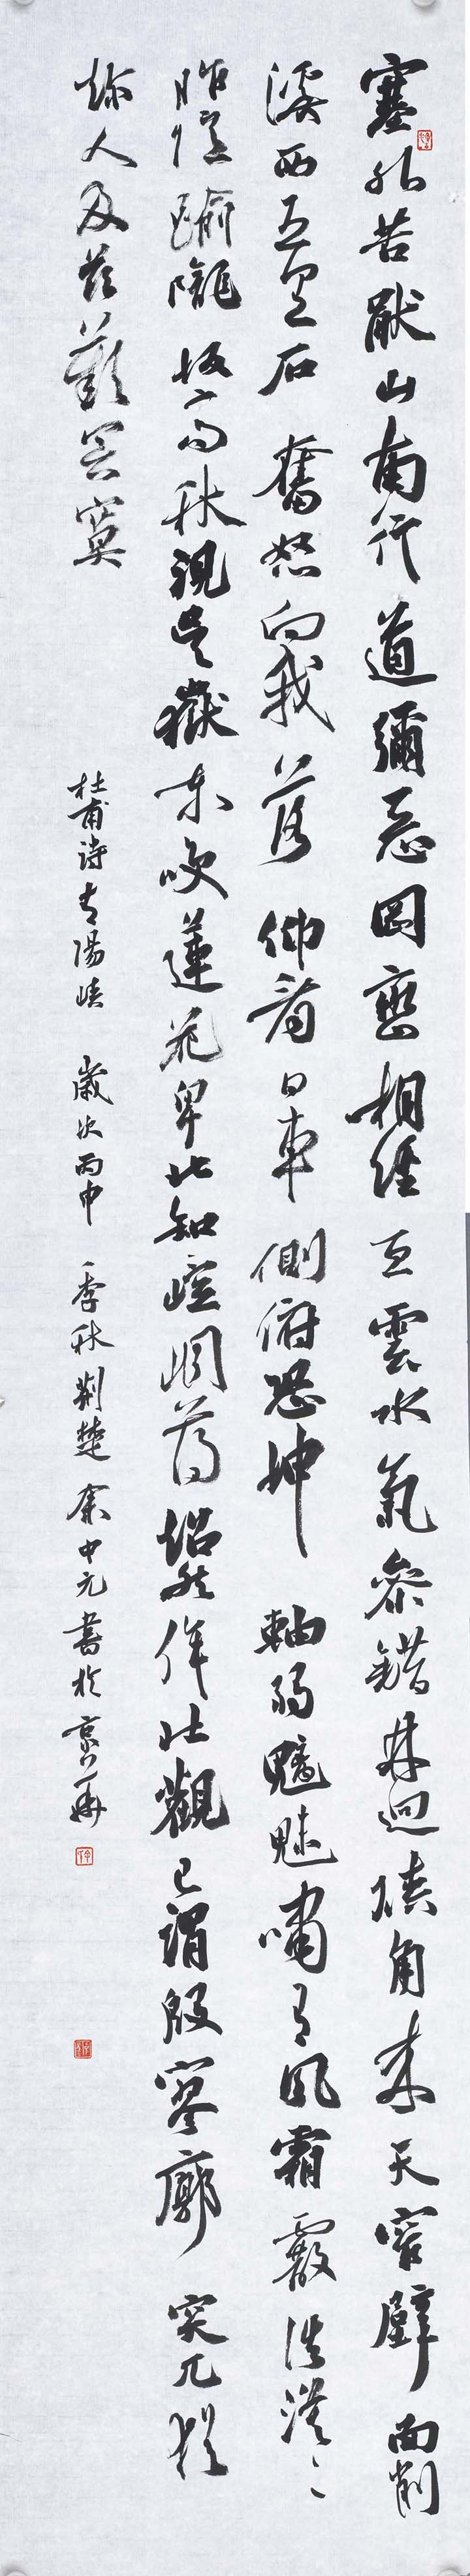 塞外苦厭山南行道彌惡岡巒相經亙雲水氣參錯林迥峽角來天窄壁面削
溪西五里石奮怒向我落仰看日車側俯恐坤軸弱魑魅嘯有風霜霰浩漠〻
昨憶踰隴坂高秋視吳嶽東笑蓮花卑北知崆峒薄超然侔壯觀已謂殷寥廓突兀猶
趂人及茲歎冥寞
杜甫詩青陽峽 歲次丙申 季秋荊楚余中元書於京華